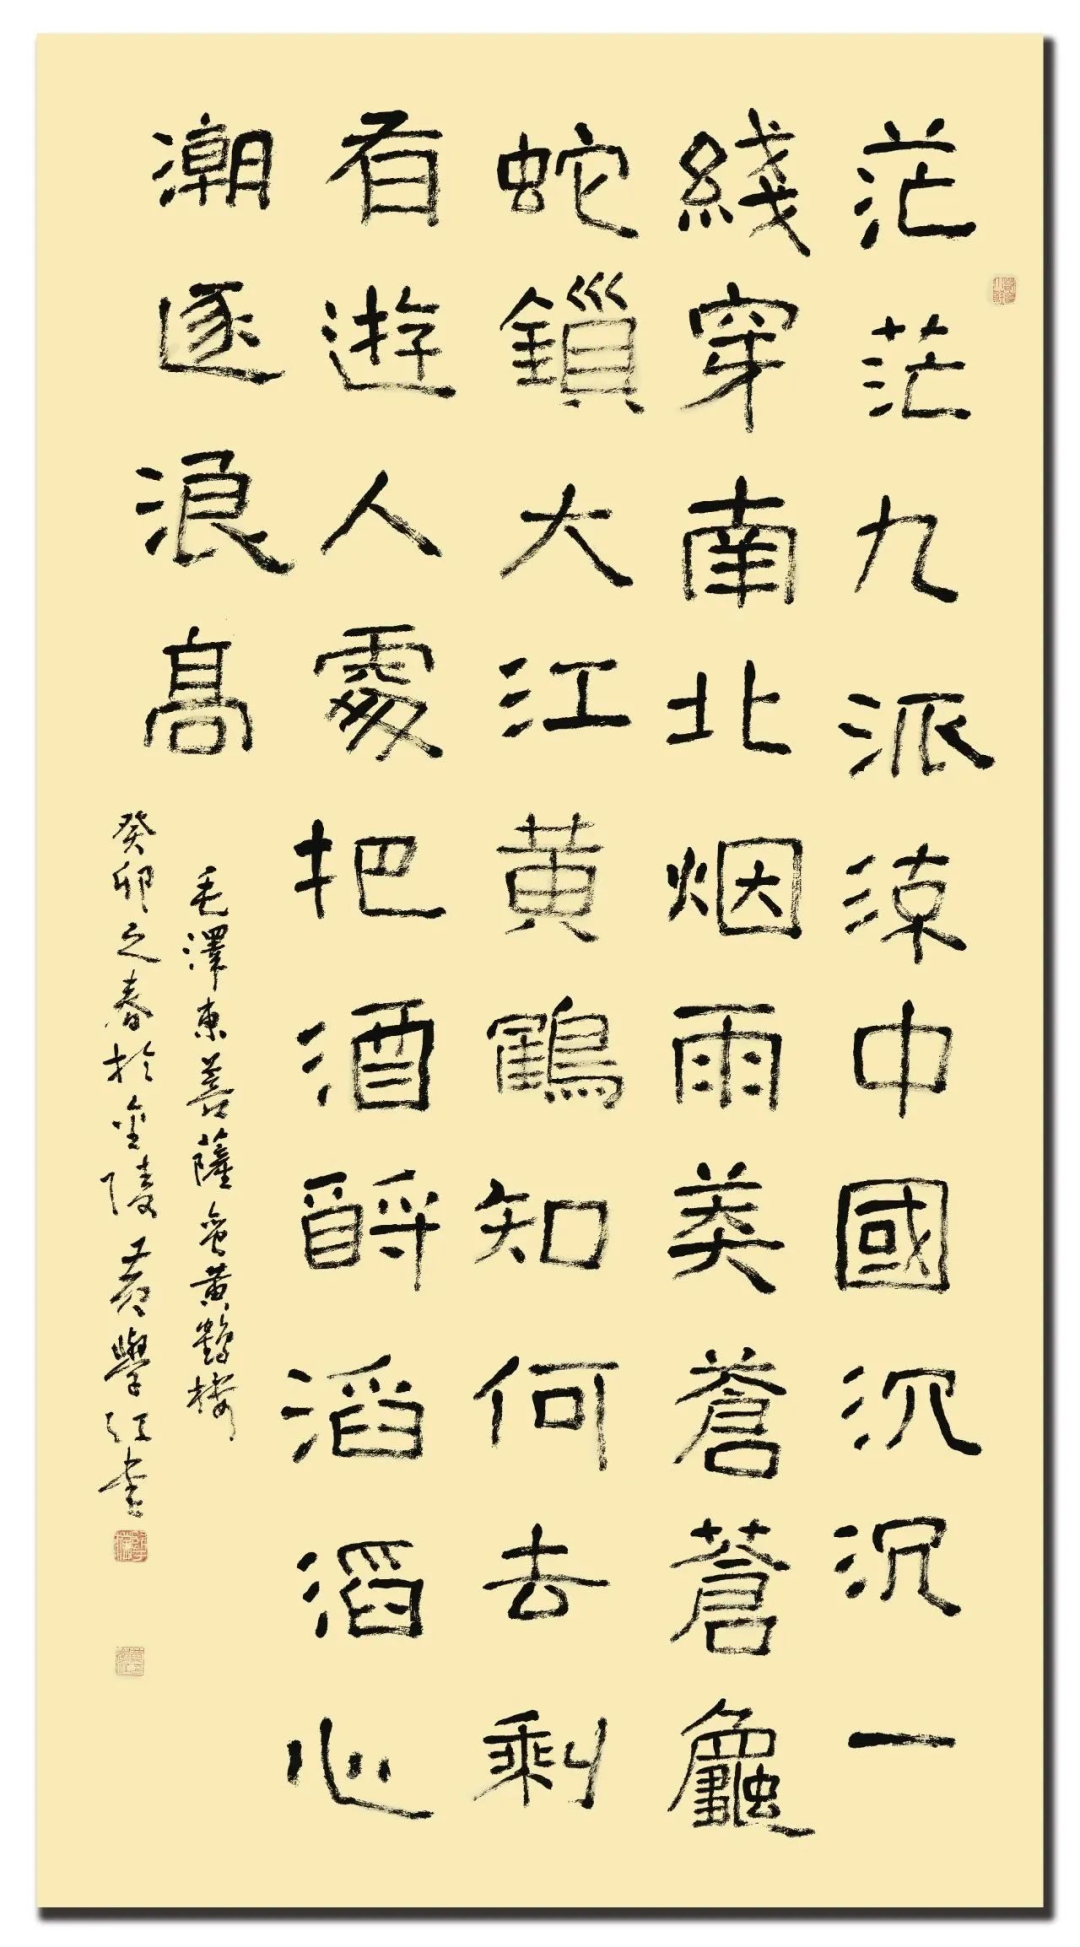 茫茫九派流中國沉沉一
綫穿南北烟雨莽蒼蒼龜
蛇鎖大江黄鶴知何去剩
有遊人處把酒酹滔滔心
潮逐浪髙
毛澤東菩薩蛮黄鶴楼
癸卯之春於金陵黄學江書